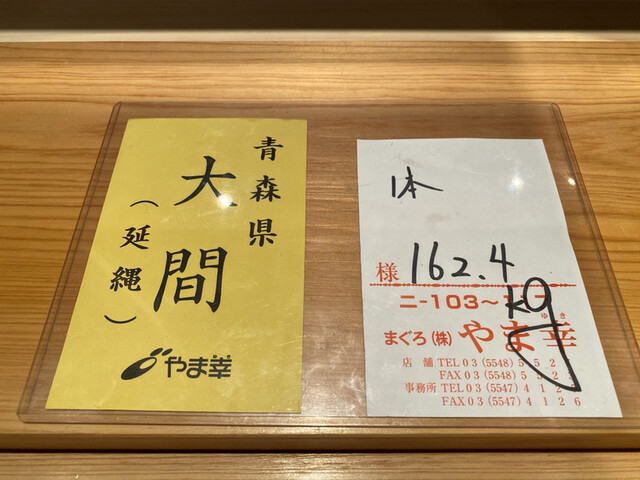 青森県
大間
（延縄）
やま幸
1本
様 162.4
kg
ニ-103～
まぐろ(株) やま幸
ゆき
店舗 TEL 03 (5548) 5 5 2
FAX 03 (5548) 5 5 2
事務所 TEL 03 (5547) 4 1 2
FAX 03 (5547) 4 1 2 6